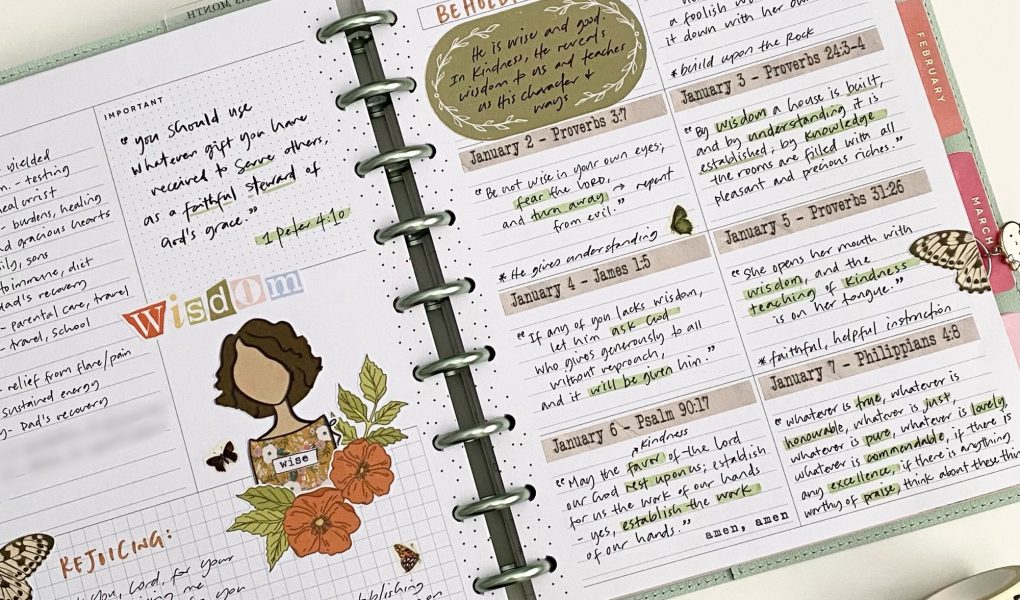 MONTH
- yielded
- testing
- burdens, healing
gracious hearts
sons
diet
Dad's recovery
- parental care, travel
- travel, school
- relief from flare/pain
sustained energy
Dad's recovery
IMPORTANT
"you should use
whatever gift you have
received to serve others,
as a faithful steward of
God's grace."
1 Peter 4:10
Wisdom
wise
REJOICING:
Lord, for your
BEHOLD
He is wise and good.
In kindness, He reveals
wisdom to us and teaches
us His character +
ways
January 2 - Proverbs 3:7
"Be not wise in your own eyes;
fear the LORD,
and turn away → repent
from evil."
* He gives understanding
January 4 - James 1:5
"If any of you lacks wisdom,
let him ask God
who gives generously to all
without reproach,
and it will be given him."
January 6 - Psalm 90:17
kindness
"May the favor of the Lord
our God rest upon us; establish
for us the work of our hands
- yes, establish the work
of our hands."
amen, amen
a foolish
it down with her own
* build upon the Rock
January 3 - Proverbs 24:3-4
"By wisdom a house is built,
and by understanding it is
established; by knowledge
the rooms are filled with all
pleasant and precious riches."
January 5 - Proverbs 31:26
"She opens her mouth with
wisdom, and the
teaching of kindness
is on her tongue."
* faithful, helpful instruction
January 7 - Philippians 4:8
"whatever is true, whatever is
honorable, whatever is just,
whatever is pure, whatever is lovely,
whatever is commendable, if there is
any excellence, if there is anything
worthy of praise, think about these
FEBRUARY
MARCH